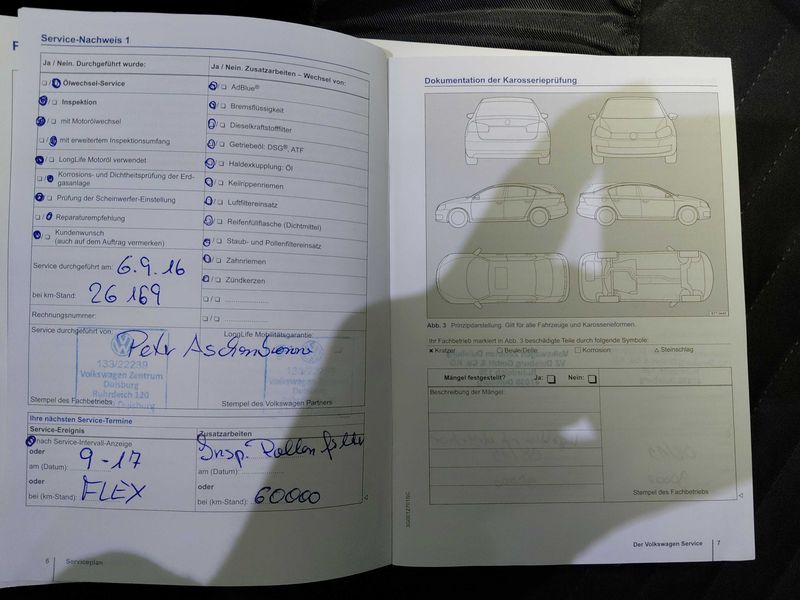 Service-Nachweis 1
Ja / Nein. Durchgeführt wurde:
Ölwechsel-Service
Inspektion
mit Motorölwechsel
mit erweitertem Inspektionsumfang
LongLife Motoröl verwendet
Korrosions- und Dichtheitsprüfung der Erd-
gasanlage
Prüfung der Scheinwerfer-Einstellung
Reparaturempfehlung
Kundenwunsch
(auch auf dem Auftrag vermerken)
Service durchgeführt am: 6.9.16
bei km-Stand: 26169
Rechnungsnummer:
Ja / Nein. Zusatzarbeiten – Wechsel von:
AdBlue®
Bremsflüssigkeit
Dieselkraftstofffilter
Getriebeöl: DSG®, ATF
Haldexkupplung: Öl
Keilrippenriemen
Luftfiltereinsatz
Reifenfüllflasche (Dichtmittel)
Staub- und Pollenfiltereinsatz
Zahnriemen
Zündkerzen
Service durchgeführt von:
LongLife Mobilitätsgarantie:
Peter
133/22239
Volkswagen Zentrum
Duisburg
Ruhrdeich 120
Duisburg
Stempel des Fachbetriebs
Stempel des Volkswagen Partners
Ihre nächsten Service-Termine
Service-Ereignis
nach Service-Intervall-Anzeige
oder
am (Datum): 9-17
oder
bei (km-Stand): FLEX
Zusatzarbeiten
Insp. Pollenfilter
am (Datum):
oder
bei (km-Stand): 60000
6 Serviceplan
Dokumentation der Karosserieprüfung
Abb. 3 Prinzipdarstellung. Gilt für alle Fahrzeuge und Karosserieformen.
Ihr Fachbetrieb markiert in Abb. 3 beschädigte Teile durch folgende Symbole:
× Kratzer ○ Beule/Delle □ Korrosion △ Steinschlag
Mängel festgestellt? Ja: Nein:
Beschreibung der Mängel
Stempel des Fachbetriebs
Der Volkswagen Service 7